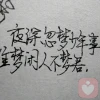 夜深忽梦少年事
梦闲人不梦君.